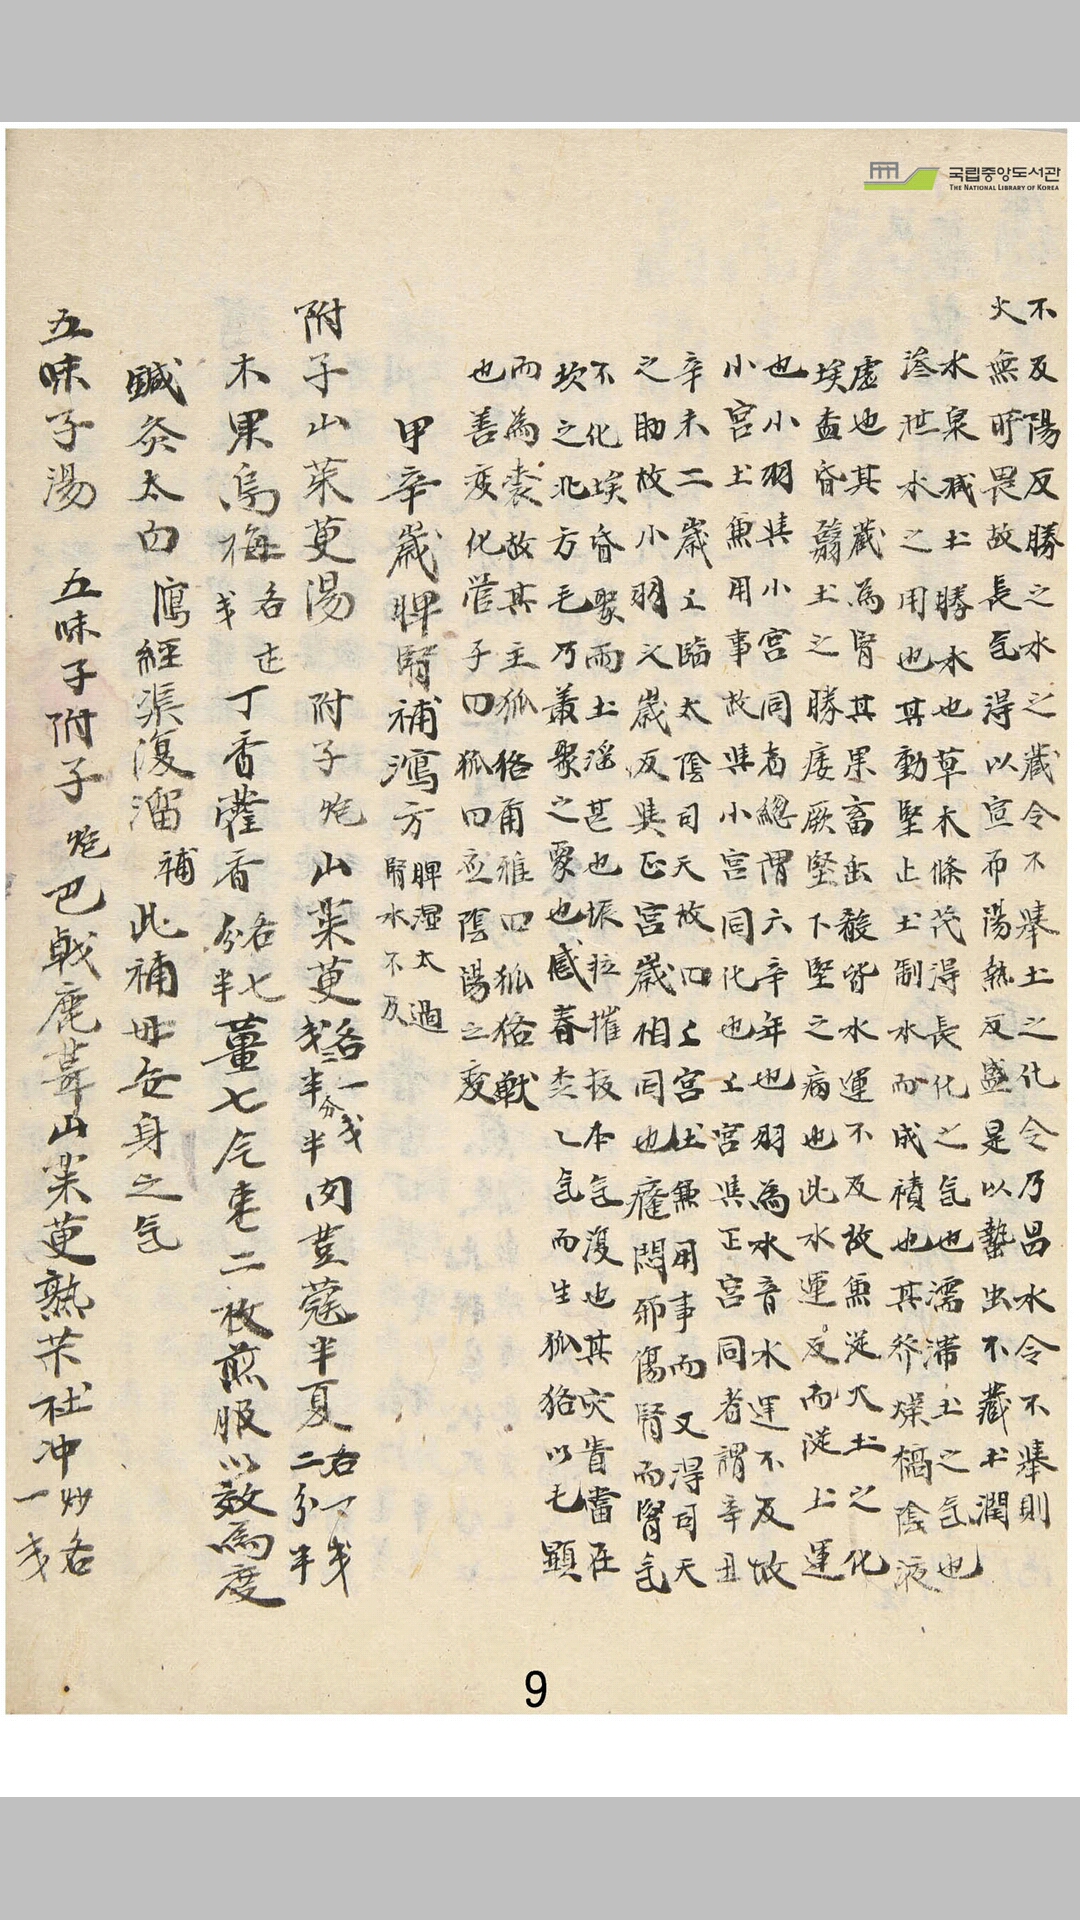 不及陽反勝之水之藏令不舉土之化令乃昌水令不舉則
火無所畏故長气得以宣布陽熱反盛是以蟄虫不藏土潤
水泉減土勝水也草木條茂得長化之气也濡滞土之气也
滲泄水之用也其動堅止土制水而成積也其發燥槁陰液
虛也其藏為腎其果畜虫殽皆水運不及故兼從火土之化
埃昏翳土之勝痿厥堅下堅之病也此水運反而從上運
也小羽與小宮同者總謂六辛年也羽為水音水運不及故
小宮土兼用事故與小宮同化也上宮與正宮同者謂辛丑
辛未二歲上臨太陰司天故曰上宮土兼用事而又得司天
之助故小羽之歲反與正宮歲相同也癃閟邪傷腎而腎气
不化埃昏聚而土滛甚也振拉摧拔本气復也其灾眚當在
坎之北方毛乃叢聚之象也感春之气而生狐狢以毛顯
而為裘故其主狐狢甬雅曰狐狢戰
也善変化管子曰狐曰應陰陽之変
甲辛歲脾腎補瀉方 脾湿太過
腎水不及
附子山茱萸湯 附子炮山茱萸各一戔半肉荳蔻半夏各一戔二分半
木果烏梅各戔丁香藿香各七分半薑七片枣二枚煎服以效為度
鍼灸太白瀉經渠復溜補此補母安身之气
五味子湯 五味子附子炮巴戟鹿茸山茱萸熟芐杜冲炒各一戔
국립중앙도서관
THE NATIONAL LIBRARY OF KOREA
9